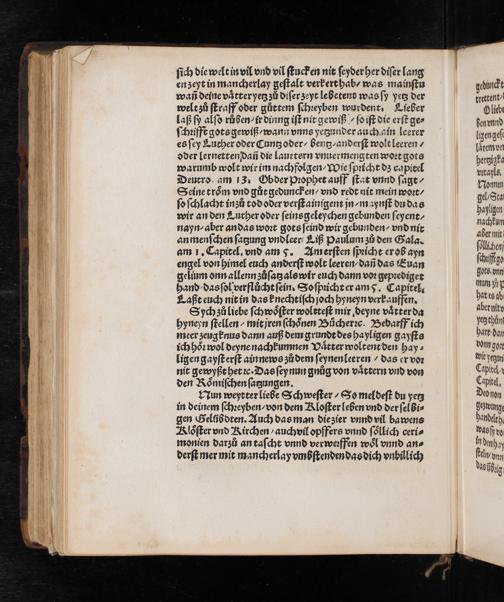 sich die welt in vil vnd vil stucken nit seyder her diser lang
en zeyt in mancherlay gestalt verkert hab / was mainstu
wañ deine vätter yetz zů diser zeyt lebetent was sy yetz der
welt zů straff oder gůttem schreyben wurdent. Lieber
laß sy also růßen / ir dinng ist nit gewiß / so ist die erst ge-
schrifft gots gewiß / wann vnns yetzunder auch ain leerer
es sey Luther oder Cuntz oder / Bentz / anderst wolt leeren /
oder lerneten / dañ die lauttern vnuermengten wort gots
warumb wolt wir im nachfolgen / Wie spricht dz capitel
Deutro. am 13. Ob der Prophet auff stat vnnd sagt /
Seine tröm vnd gůt geduncken / vnd redt nit mein wort /
so schlacht in zů tod oder verstainigent jn / maynst du das
wir an den Luther oder seins geleychen gebunden seyent /
nayn / aber an das wort gots seind wir gebunden / vnd nit
an menschen satzung vnd leer. Liß Paulum zů den Gala.
am 1. Capitel, vnd am 5. Am ersten spricht er ob ayn
engel von himel euch anderst wolt leeren / dañ das Euan
gelium onn allenn zůsatz als wir euch dann vor geprediget
hand / das sol verflůcht sein. So spricht er am 5. Capitel,
Laßt euch nit in das knechtisch joch hyneyn verkauffen.
Sych zů liebe schwöster wolttest mir, deyne vätter da
hyneyn stellen / mit jren schönen Büchern ꝛc. Bedarff ich
meer zeugknus dann auß dem grundt des hayligen gaysts
ich hör wol deyne nachkumnen Vätter woltent den hay /
ligen gayst erst ain news zů dem seynen leeren / das er vor
nit gewyßt het ꝛc. Das sey nun gnůg von vättern vnd von
den Römischen satzungen.
Nun weytter liebe Schwester / So meldest du yetz
in deinem schreyben / von dem Kloster leben vnd der selbi-
gen Gelübdten. Auch das man die zier vnnd vil bawens
Klöster vnd Kirchen / auch vil opffers vnnd söllich ceri-
monien darzů an tascht vnnd verweiffen wöl vnnd an-
derst mer mit mancherlay vmbstenden das dich vnbillich